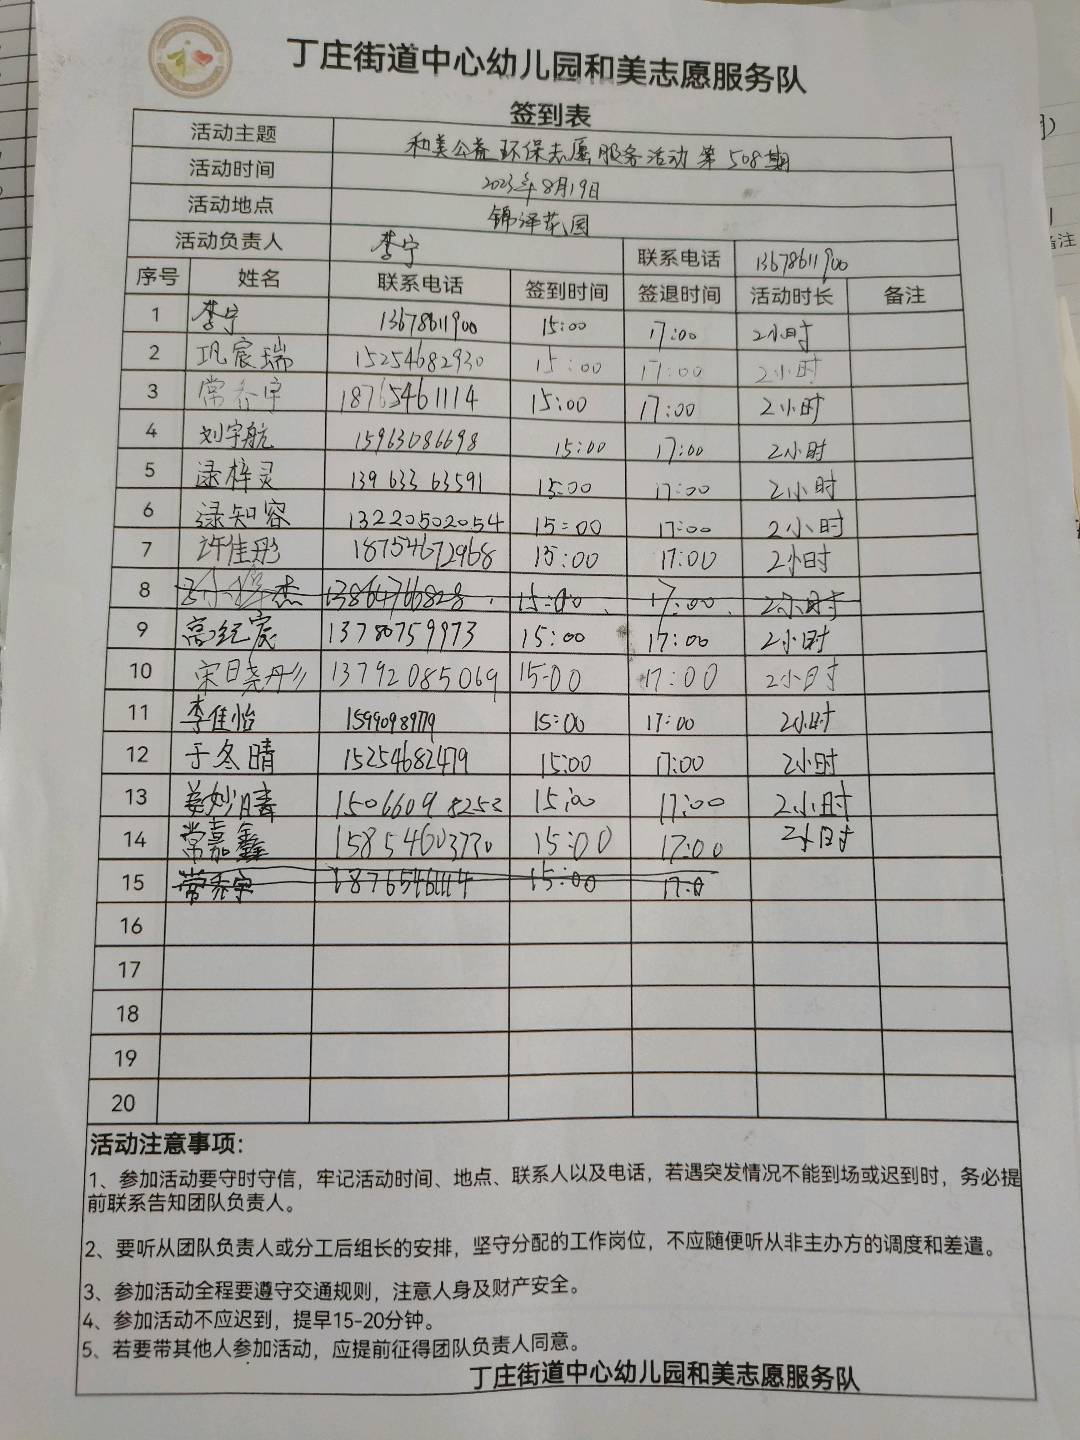 丁庄街道中心幼儿园和美志愿服务队
签到表
活动主题 和美公益环保志愿服务活动第508期
活动时间 2023年8月19日
活动地点 锦泽花园
活动负责人 李宁 联系电话 13678611900
序号 姓名 联系电话 签到时间 签退时间 活动时长 备注
1 李宁 13678611900 15:00 17:00 2小时
2 巩宸瑞 15254682930 15:00 17:00 2小时
3 常乔宇 18765461114 15:00 17:00 2小时
4 刘宇航 15963086698 15:00 17:00 2小时
5 逯梓灵 139 633 63591 15:00 17:00 2小时
6 逯知容 13220502054 15:00 17:00 2小时
7 许佳彤 18754672968 15:00 17:00 2小时
8 杰 13864766828 15:00 17:00 2小时
9 高纪宸 13780759973 15:00 17:00 2小时
10 宋日尧彤 13792085069 15:00 17:00 2小时
11 李佳怡 15:00 17:00 2小时
12 于冬晴 15254682479 15:00 17:00 2小时
13 姜妙晴 15066098253 15:00 17:00 2小时
14 常嘉鑫 15854603730 15:00 17:00 2小时
15 常乔宇 18765461114 15:00 17:0
16
17
18
19
20
活动注意事项：
1、参加活动要守时守信，牢记活动时间、地点、联系人以及电话，若遇突发情况不能到场或迟到时，务必提
前联系告知团队负责人。
2、要听从团队负责人或分工后组长的安排，坚守分配的工作岗位，不应随便听从非主办方的调度和差遣。
3、参加活动全程要遵守交通规则，注意人身及财产安全。
4、参加活动不应迟到，提早15-20分钟。
5、若要带其他人参加活动，应提前征得团队负责人同意。
丁庄街道中心幼儿园和美志愿服务队